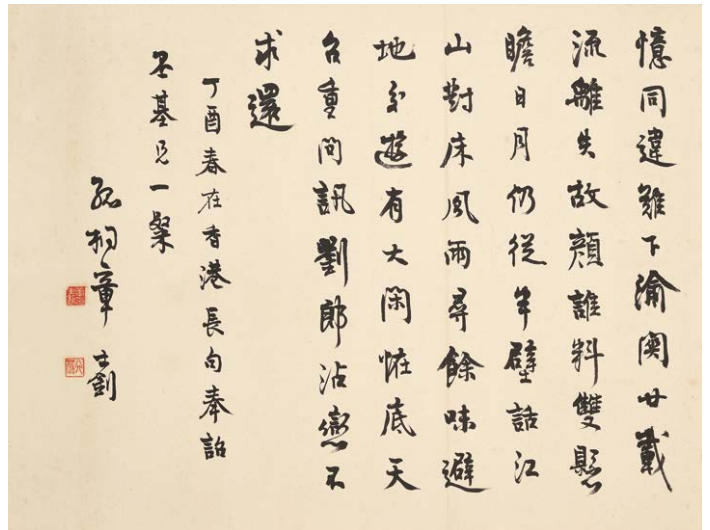 憶同違難下渝關廿載
流離失故顏誰料雙懸
瞻日月仍從半壁話江
山對床風雨尋餘味避
地交遊有大閑恠底天
台重問訊劉郎沾戀不
求還
丁酉春在香港長句奉詒
丕基兄一粲
孤桐章士釗